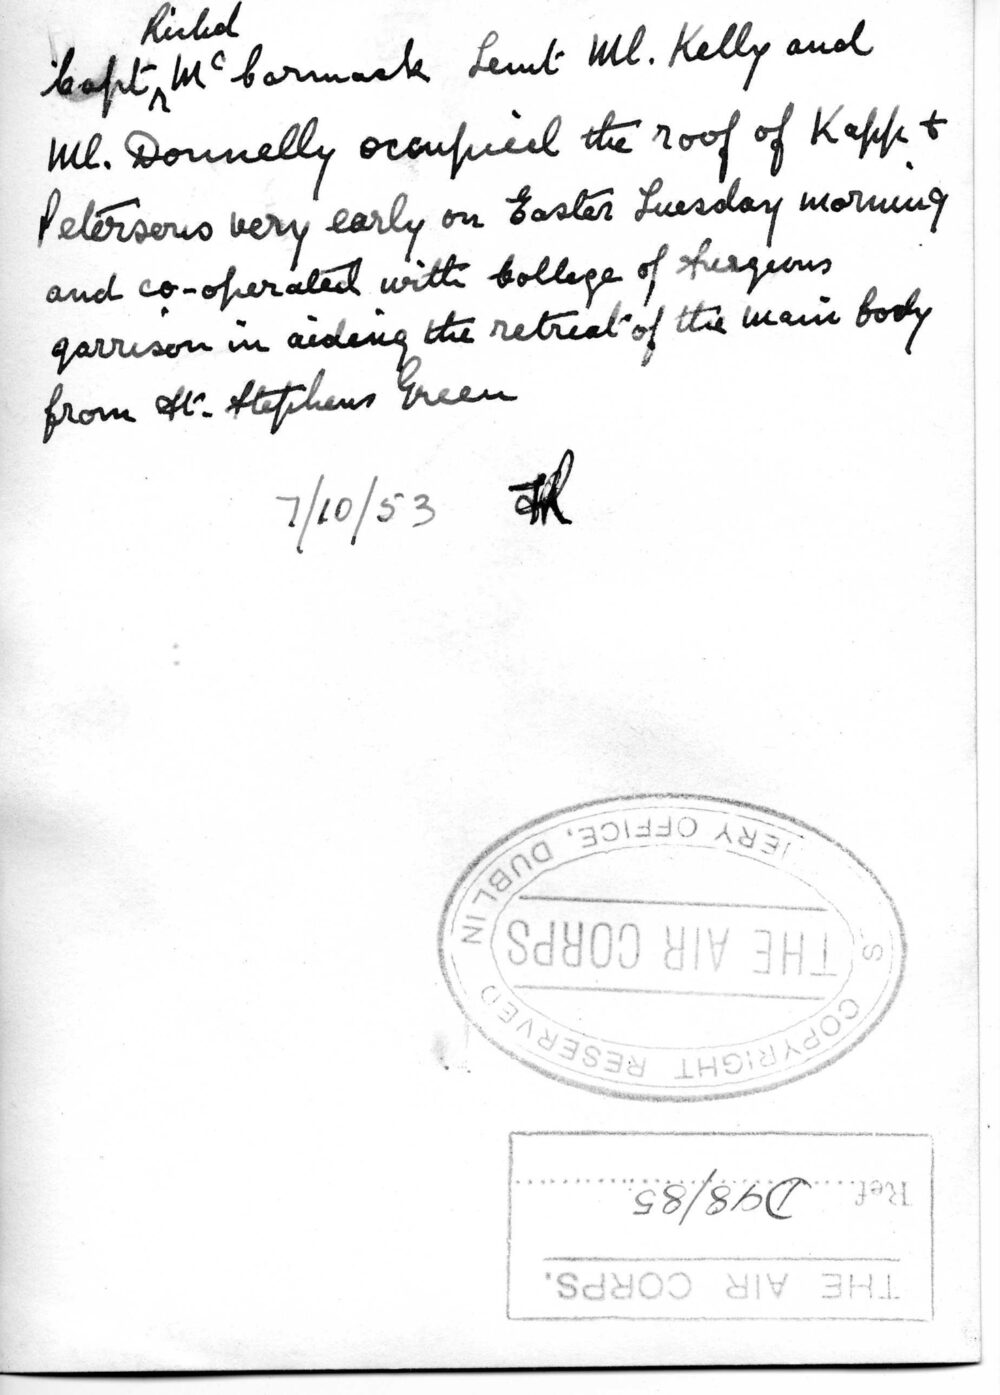 Richd
Capt ^ McCormack Leiut Ml. Kelly and
Ml. Donnelly occupied the roof of Kapp &
Petersons very early on Easter Tuesday morning
and co-operated with College of Surgeons
garrison in aiding the retreat of the main body
from St. Stephens Green
7/10/53
IERY OFFICE, DUBLIN
THE AIR CORPS
S COPYRIGHT RESERVED
Ref. D98/85
THE AIR CORPS.